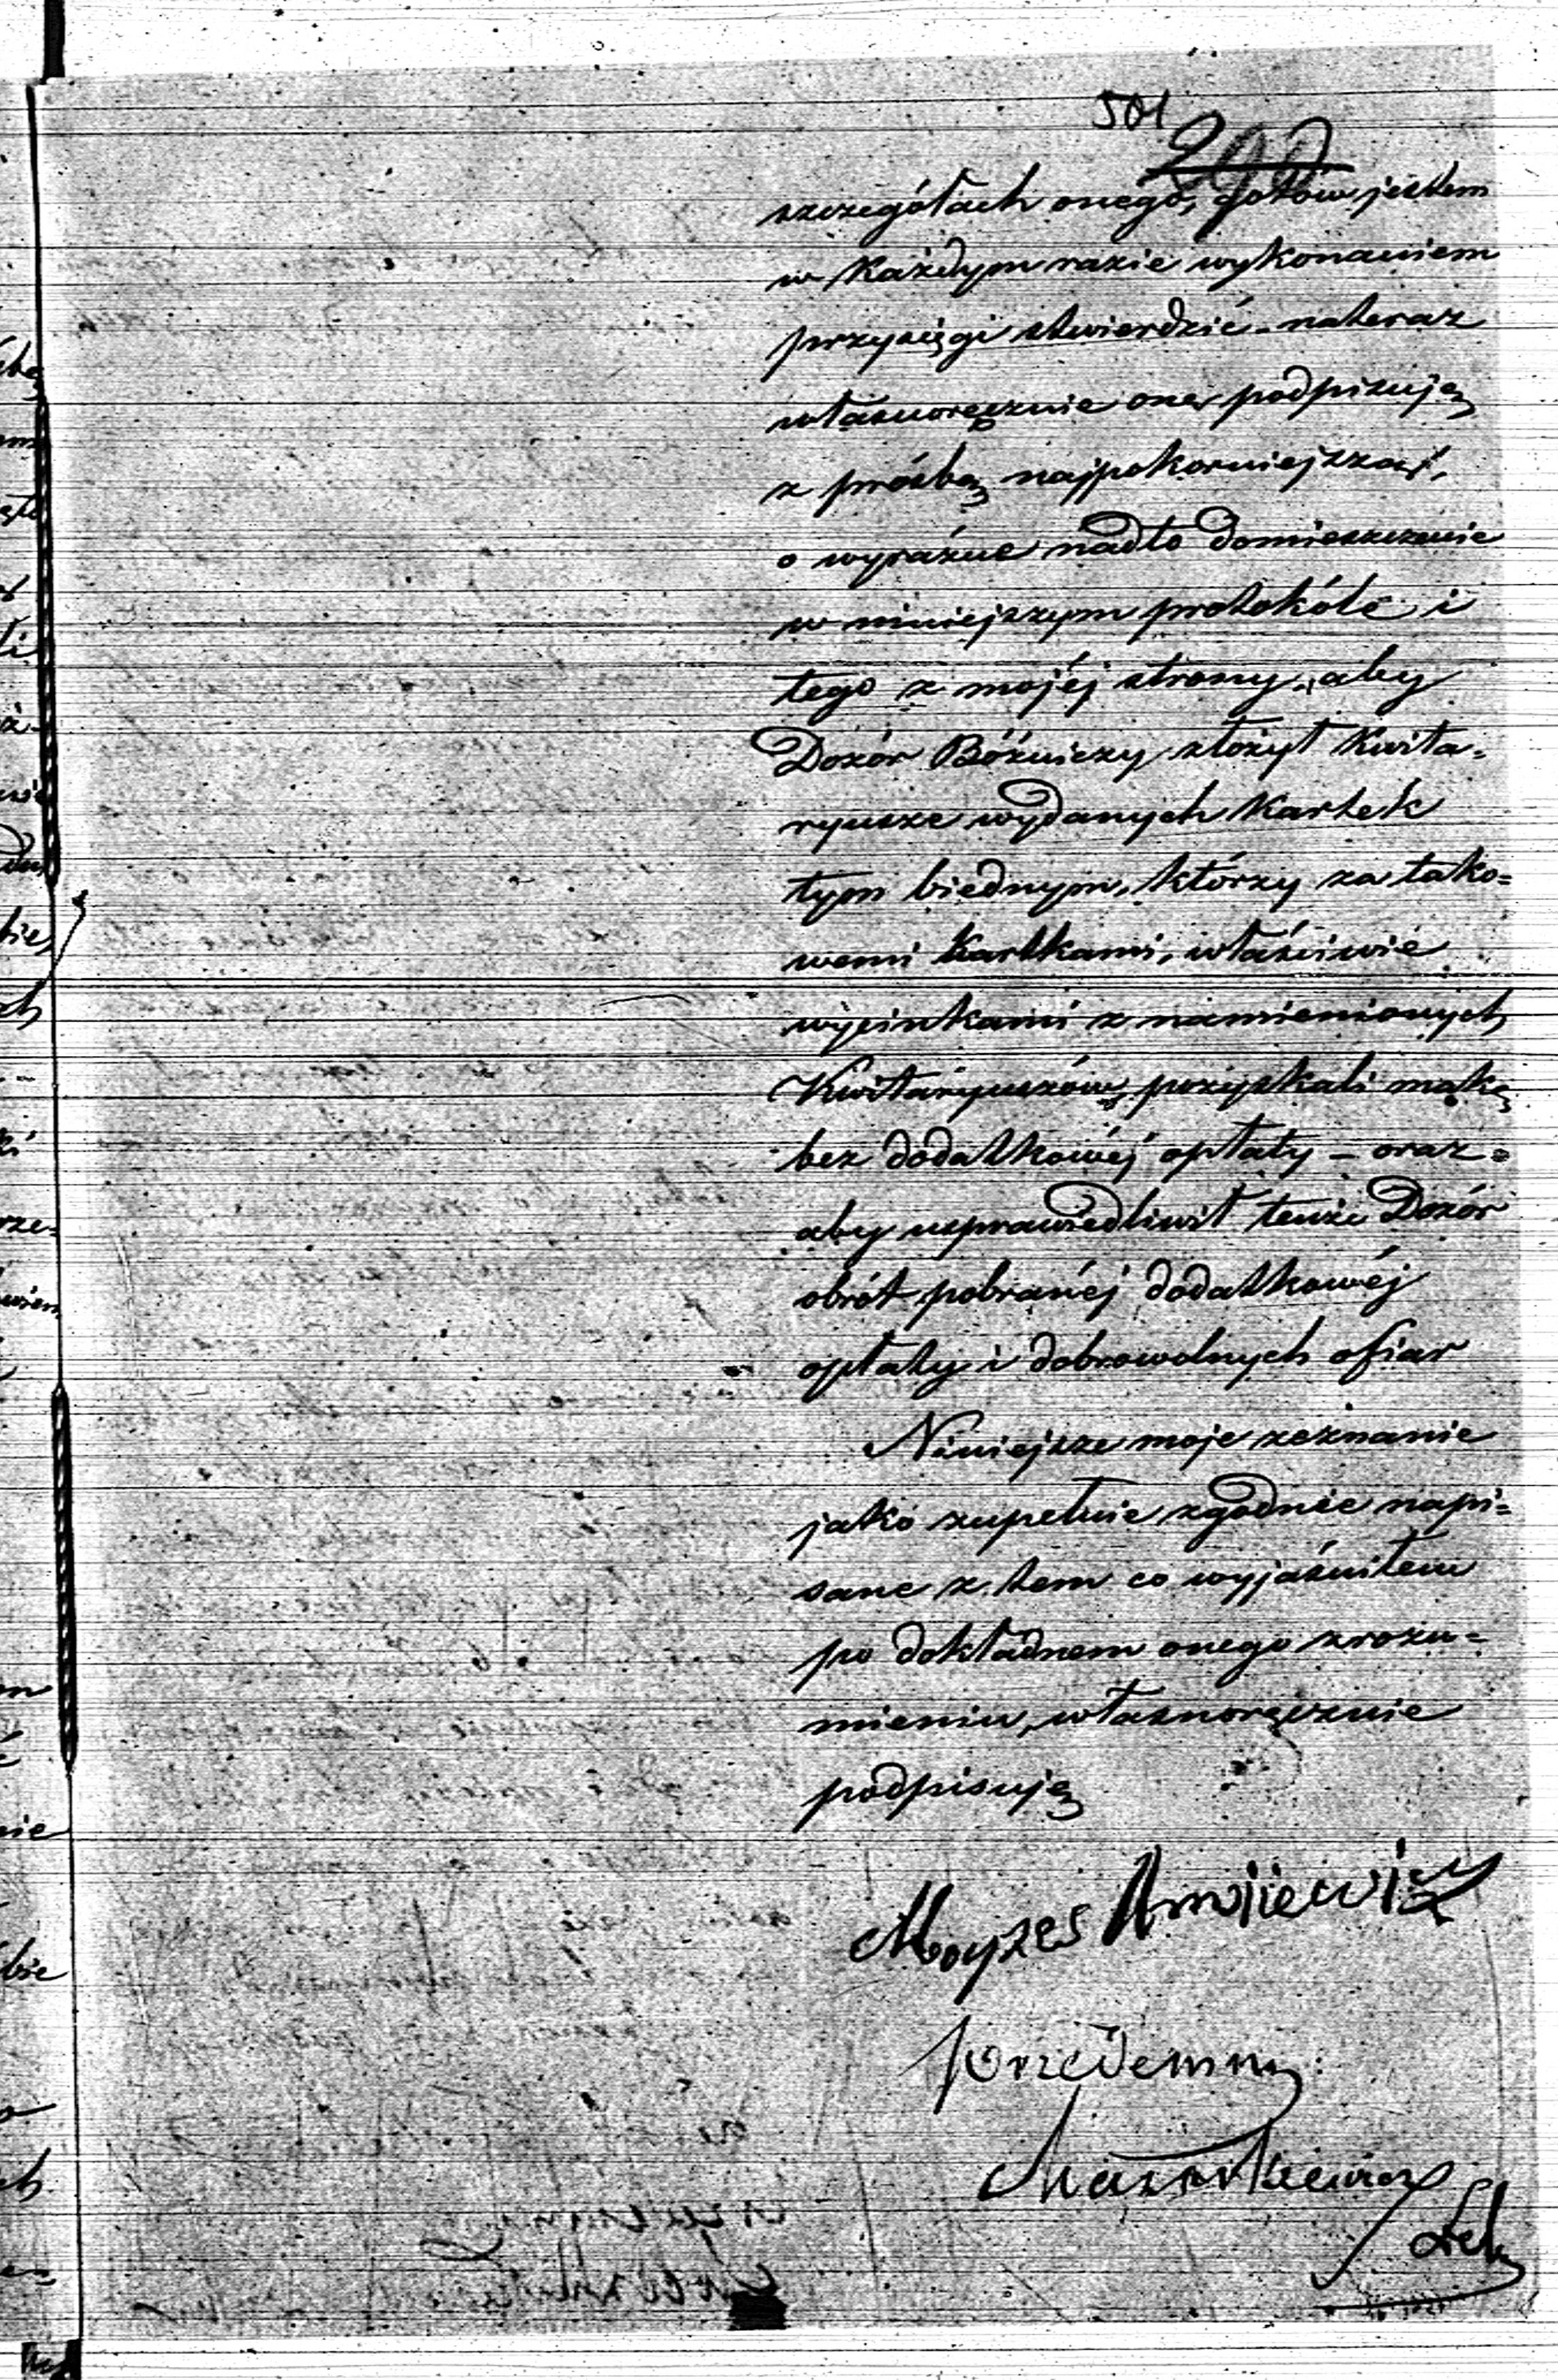 501
szczegółach onego, gotów jestem
w każdym razie wykonaniem
przysięgi stwierdzić – nateraz
własnoręcznie one podpisuję
z prośbą najpokorniejszą,
o wyraźne nadto domieszczenie
w niniejszym protokóle i
tego z mojéj strony, aby
Dozór Bóżniczy złożył Kwita=
ryusze wydanych Kartek
tym biednym, którzy za tako=
wemi Kartkami, właściwie
wycinkami z namienionych
Kwitaryuszów, pozyskali mąkę
bez dodatkowéj opłaty – oraz =
aby usprawiedliwił tenże Dozór
obrót pobranéj dodatkowéj
opłaty i dobrowolnych ofiar
Niniejsze moje zeznanie
jako zupełnie zgodnie napi=
sane z tem co wyjaśniłem
po dokładnem onego zrozu=
mieniu, własnoręcznie
podpisuję
Moyzes
przedemną